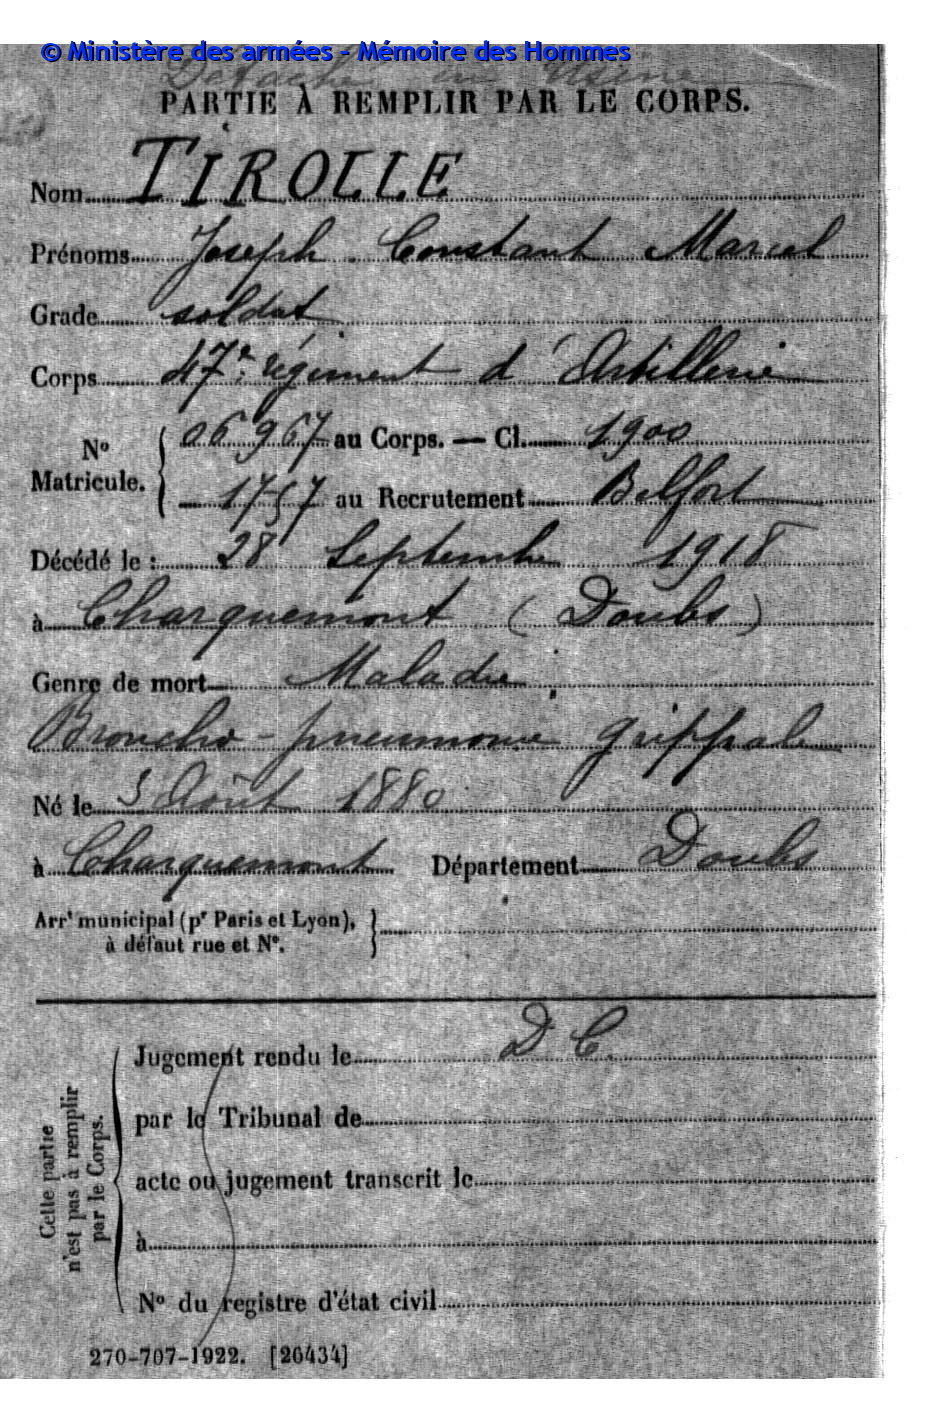 © Ministère des armées - Mémoire des Hommes
Détaché en Usine
PARTIE À REMPLIR PAR LE CORPS.
Nom TIROLLE
Prénoms Joseph Constant Marcel
Grade soldat
Corps 47e régiment d'Artillerie
No Matricule. { 06967 au Corps. — Cl. 1900
1757 au Recrutement Belfort
Décédé le : 28 Septembre 1918
à Charquemont (Doubs)
Genre de mort Maladie
Broncho-pneumonie grippale
Né le 5 Août 1880
à Charquemont Département Doubs
Arrt municipal (pr Paris et Lyon),
à défaut rue et No.
Cette partie
n'est pas à remplir
par le Corps.
Jugement rendu le D C
par le Tribunal de
acte ou jugement transcrit le
à
No du registre d'état civil
270-707-1922. [26434]